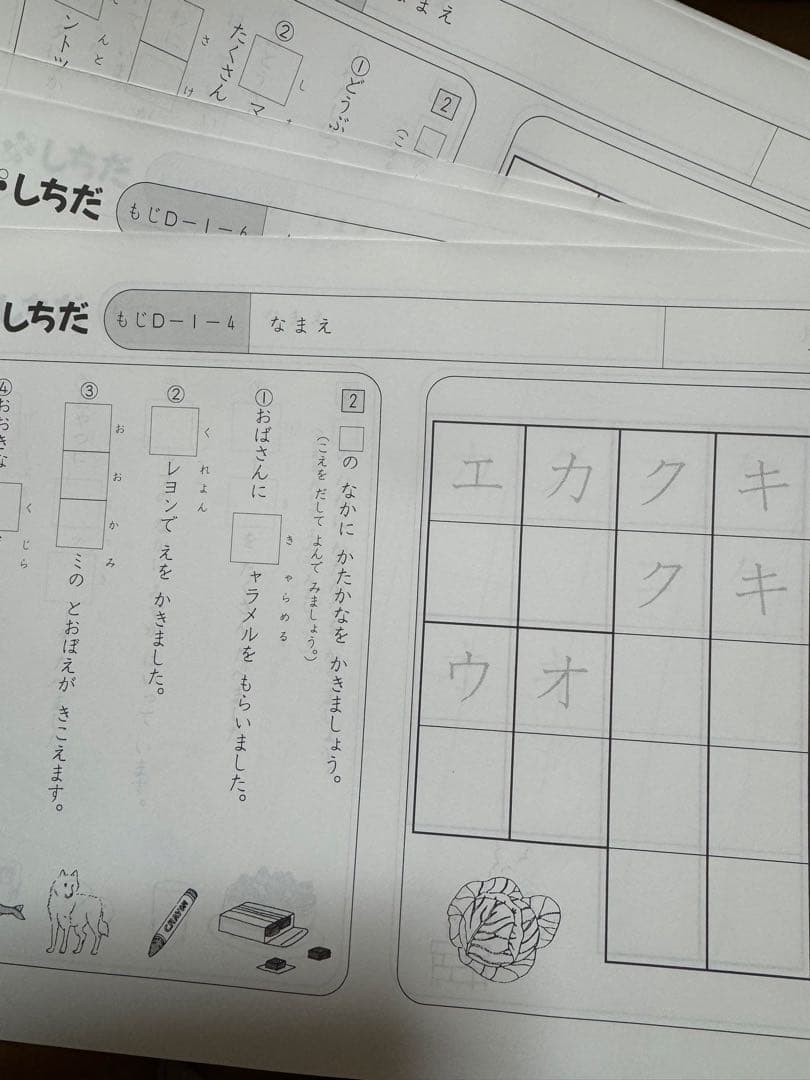 なまえ
②
たくさん
し
マ
さ
け
んと
ントツ
①どうぶ
2
しちだ
しちだ
もじD-1-6
しちだ
もじD-1-4
なまえ
キ
キ
ク
ク
カ
オ
エ
ウ
2
□の なかに かたかなを かきましょう。
(こえを だして よんで みましょう。)
①おばさんに □ャラメルを もらいました。
きゃらめる
②□レヨンで えを かきました。
くれよん
③□□□ミの とおぼえが きこえます。
おおかみ
④おおきな
くじら
CRAYON